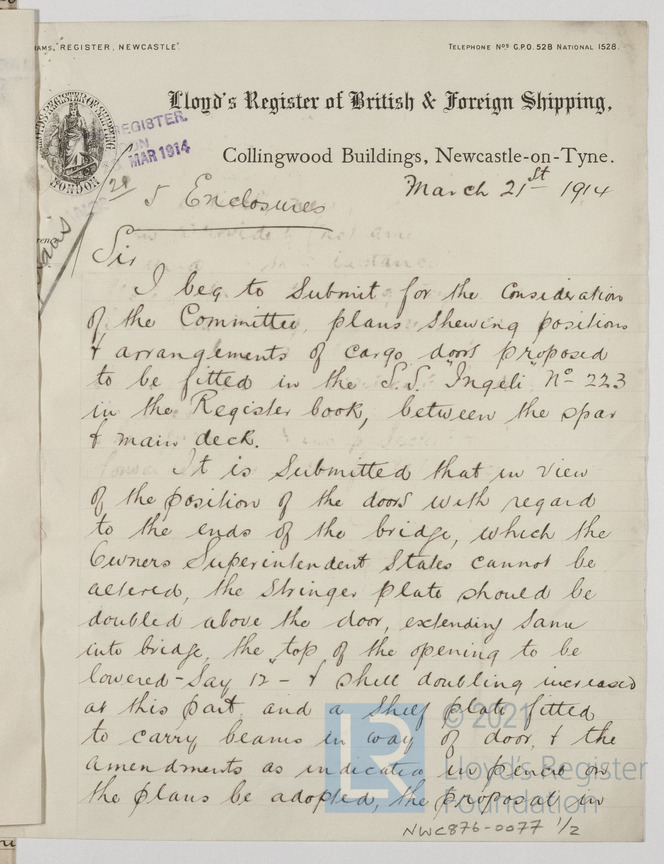 AMS, "REGISTER, NEWCASTLE".
TELEPHONE Nos G.P.O. 528 NATIONAL 1528.
Lloyd's Register of British & Foreign Shipping,
Collingwood Buildings, Newcastle-on-Tyne.
LLOYD'S REGISTER OF SHIPPING
LONDON
REGISTER.
MAR 1914
March 21st 1914
5 Enclosures
Sir
I beg to submit for the consideration
of the Committee, plans shewing positions
& arrangements of cargo doors proposed
to be fitted in the S.S. "Ingeli" No 223
in the Register book, between the spar
& main deck.
It is submitted that in view
of the position of the doors with regard
to the ends of the bridge, which the
Owners Superintendent states cannot be
altered, the stringer plate should be
doubled above the door, extending same
into bridge, the top of the opening to be
lowered - say 12" - & shell doubling increased
at this part, and a shelf plate fitted
to carry beams in way of door, & the
amendments as indicated in pencil on
the plans be adopted, the proposal in
© 2021
Lloyd's Register
Foundation
LR
NWC876-0077 1/2